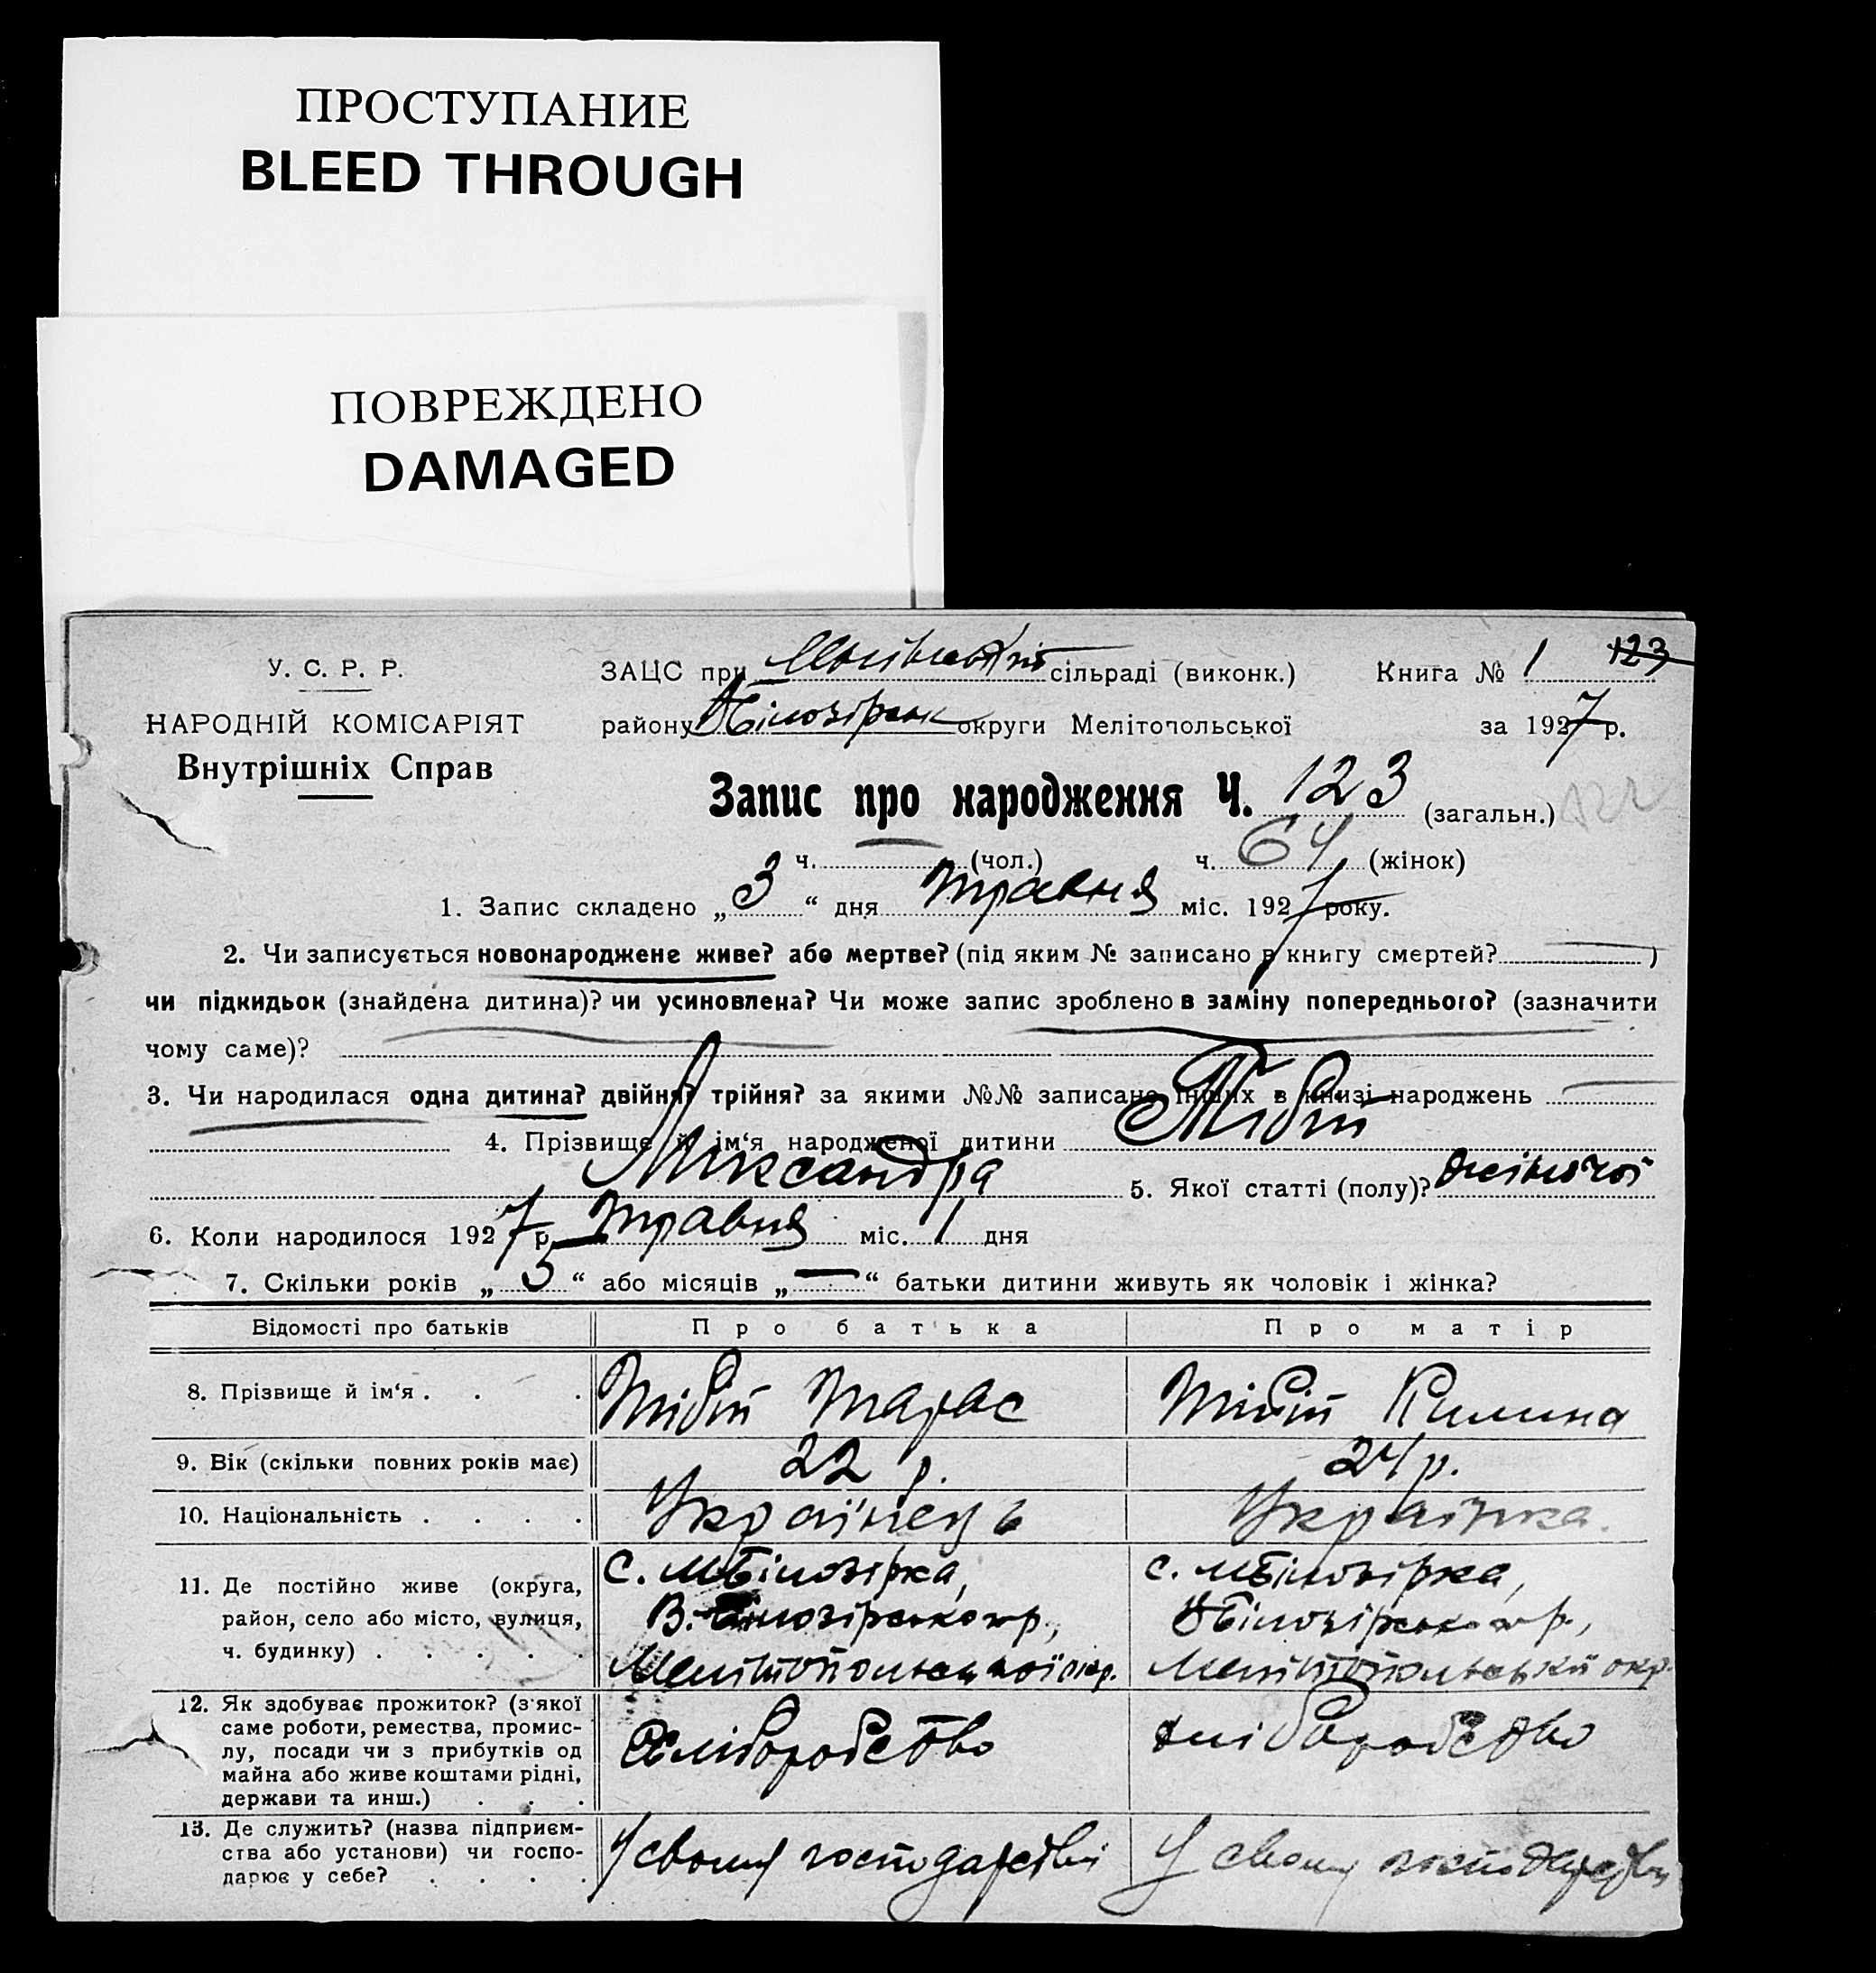 ПРОСТУПАНИЕ
BLEED THROUGH
ПОВРЕЖДЕНО
DAMAGED
У. С. Р. Р.
НАРОДНІЙ КОМІСАРІЯТ
Внутрішніх Справ
ЗАЦС при сільраді (виконк.) Книга № 1 123
району округи Мелітопольської за 1927 р.
Запис про народження Ч. 123 (загальн.)
ч. — (чол.) ч. 64 (жінок)
1. Запис складено „3“ дня травня міс. 1927 року.
2. Чи записується новонароджене живе? або мертве? (під яким № записано в книгу смертей? — )
чи підкидьок (знайдена дитина)? чи усиновлена? Чи може запис зроблено в заміну попереднього? (зазначити
чому саме)?
3. Чи народилася одна дитина? двійня? трійня? за якими №№ записано інших в книзі народжень —
4. Прізвище й ім‘я народженої дитини
Олександра 5. Якої статті (полу)? жіночої
6. Коли народилося 1927 р. травня міс. 1 дня
7. Скільки років „5“ або місяців „—“ батьки дитини живуть як чоловік і жінка?
Відомості про батьків Про батька Про матір
8. Прізвище й ім‘я . . . Тарас Килина
9. Вік (скільки повних років має) 22 р. 24 р.
10. Національність . . . . Українець Українка.
11. Де постійно живе (округа, район, село або місто, вулиця, ч. будинку) . . . . .
с. МБілозірка, с. МБілозірка,
В.-Білозірського р., ВБілозірського р.,
Мелітопольської окр. Мелітопольської окр.
12. Як здобуває прожиток? (з якої саме роботи, ремества, промислу, посади чи з прибутків од майна або живе коштами рідні, держави та инш.) . . .
Хліборобство хліборобство
13. Де служить? (назва підприємства або установи) чи господарює у себе? . . . .
У своему господарстві У своему господарстві